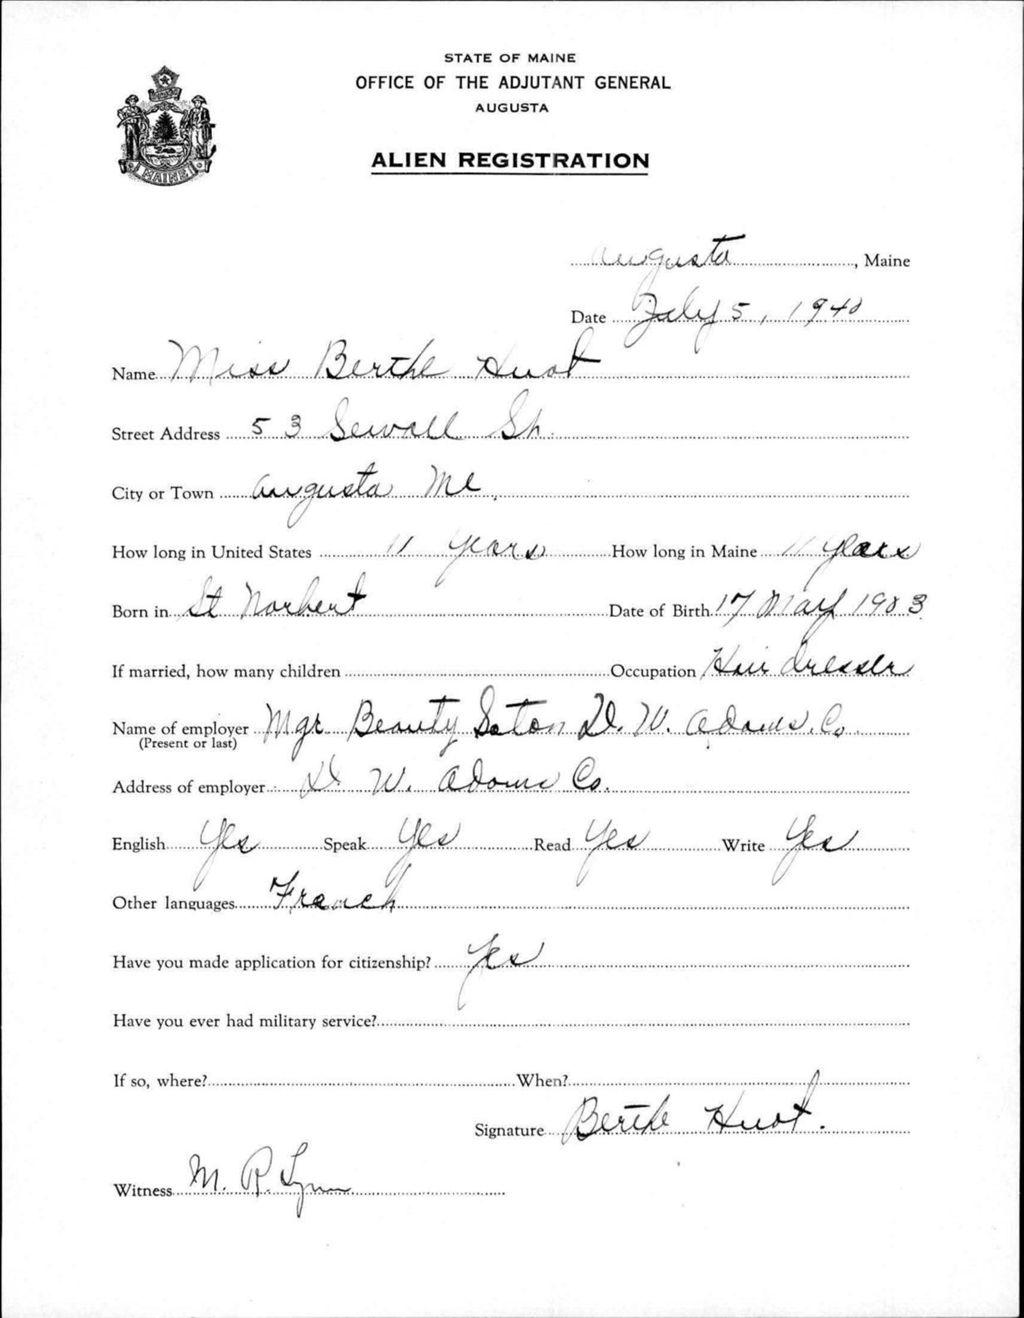 STATE OF MAINE
OFFICE OF THE ADJUTANT GENERAL
AUGUSTA
ALIEN REGISTRATION
MAINE
Augusta, Maine
Date July 5, 1940
Name Miss Berthe Huot
Street Address 53 Sewall St.
City or Town Augusta Me.
How long in United States 11 years How long in Maine 11 years
Born in St Norbert Date of Birth 17 May 1903
If married, how many children Occupation Hair dresser
Name of employer Mgr Beauty Salon D. W. Adams. Co.
(Present or last)
Address of employer D. W. Adams Co.
English Yes Speak Yes Read Yes Write Yes
Other languages French
Have you made application for citizenship? Yes
Have you ever had military service?
If so, where? When?
Signature Berthe Huot.
Witness M. R. Lynn